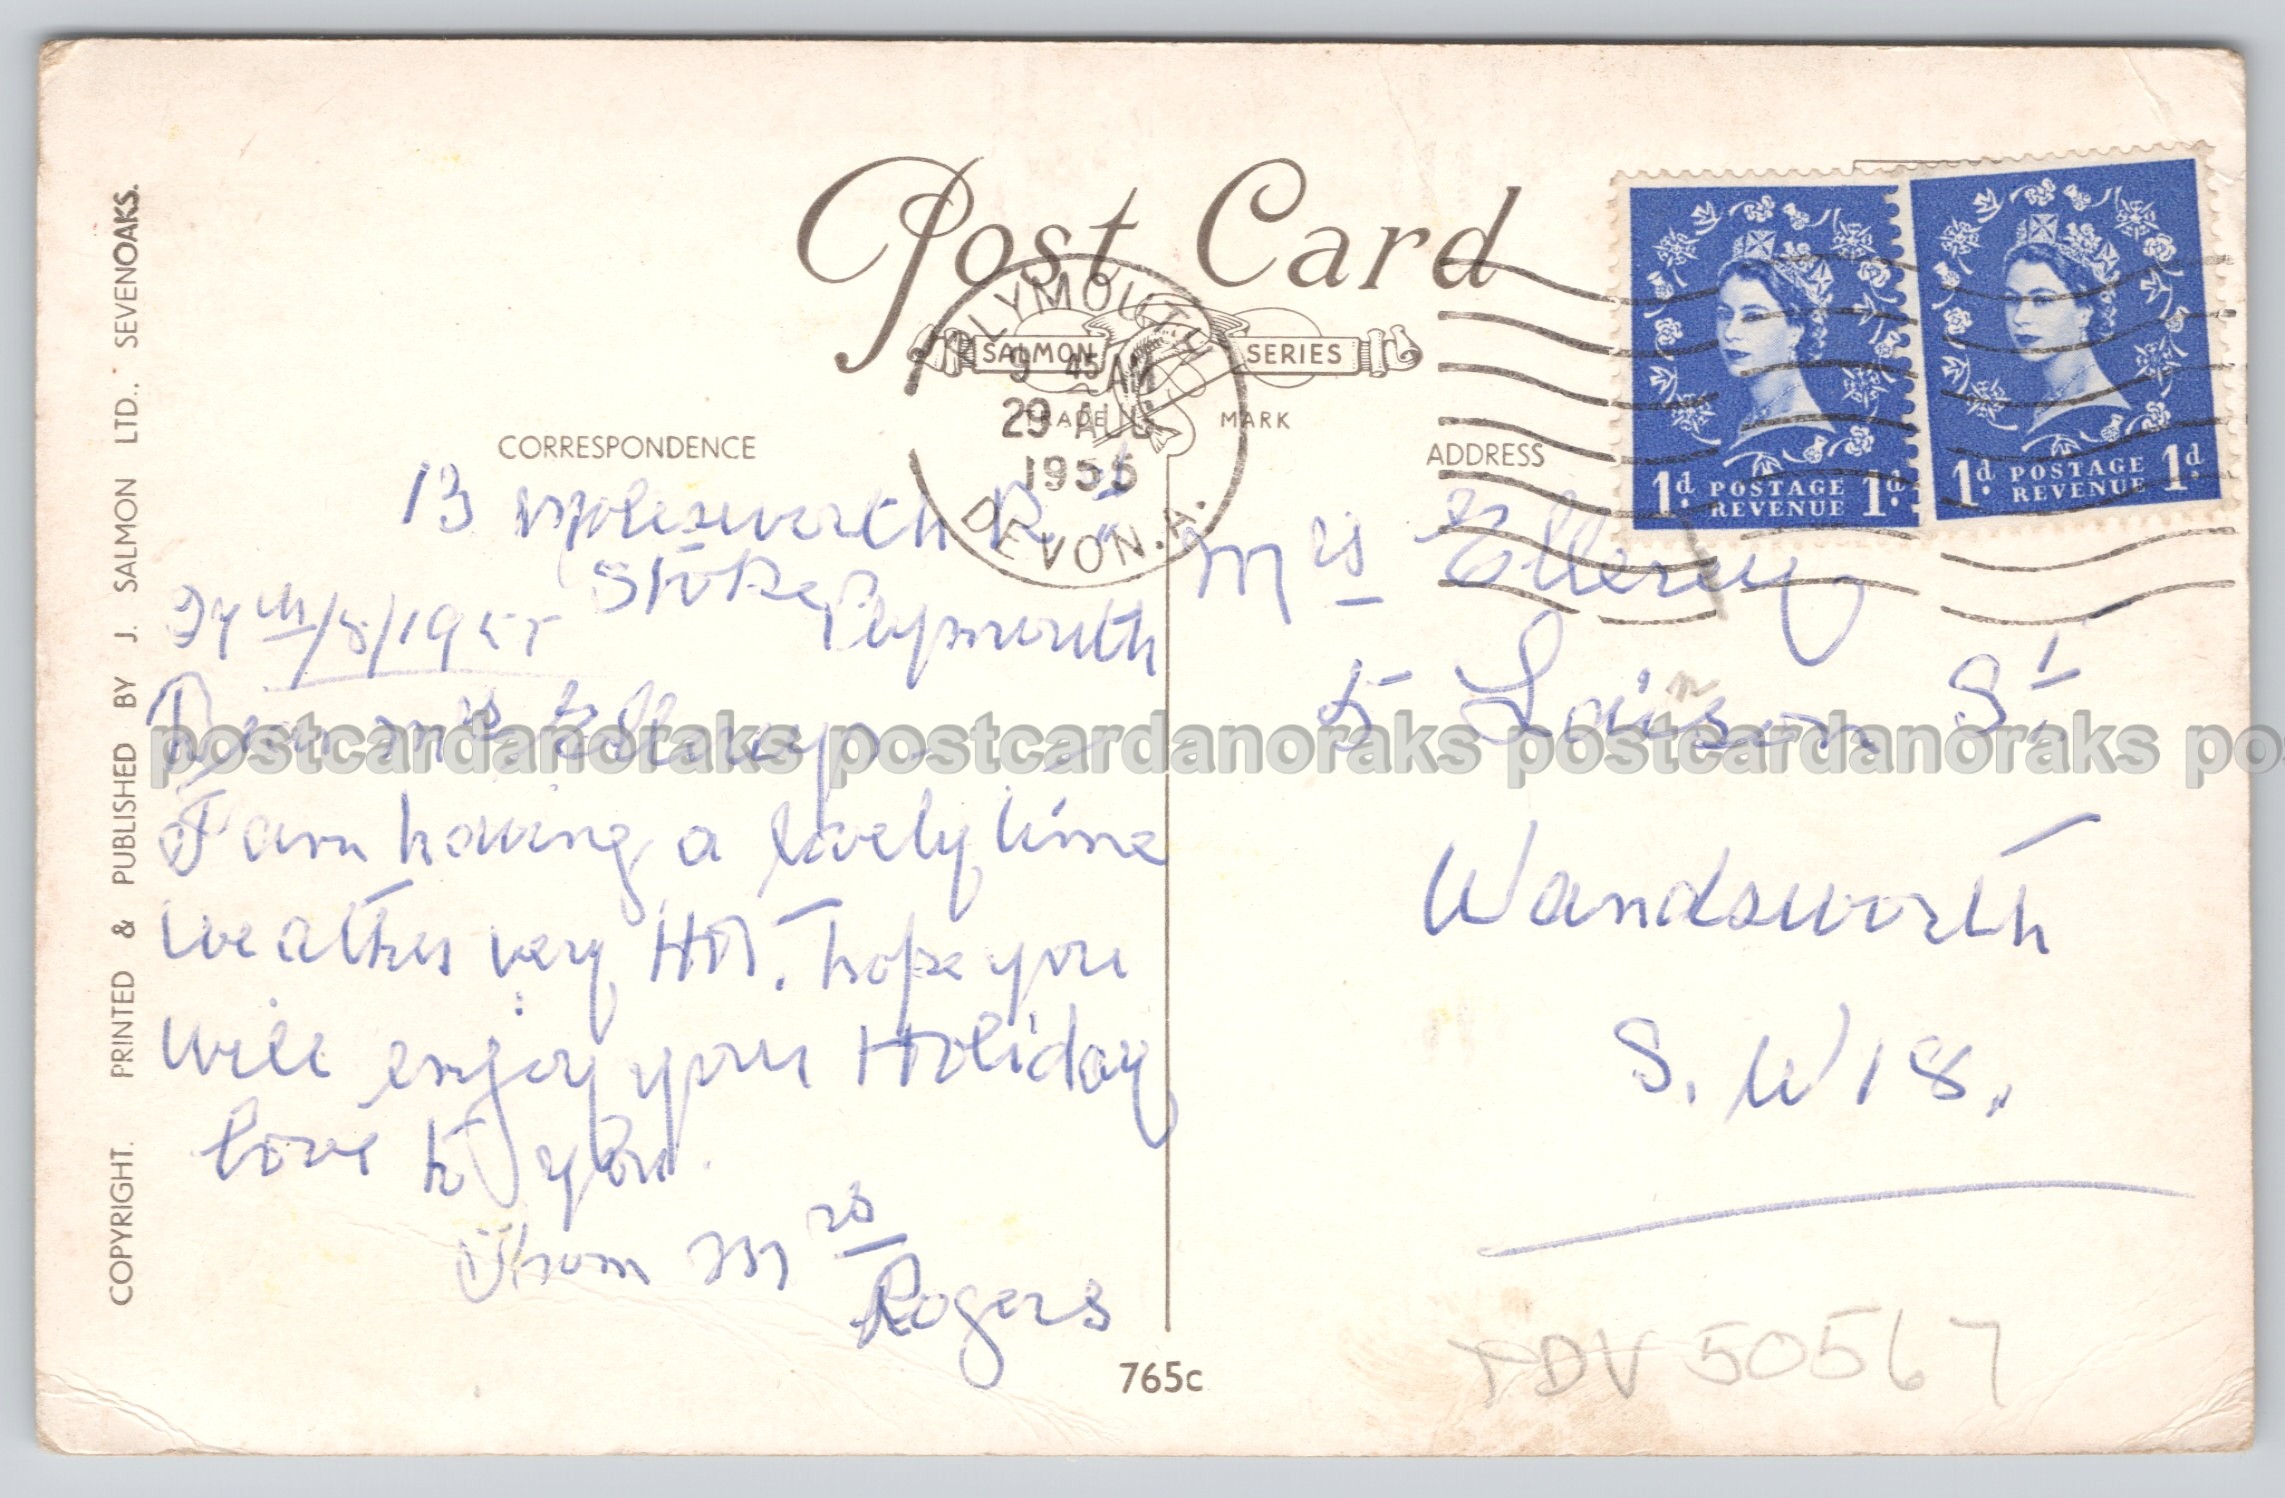 COPYRIGHT. PRINTED & PUBLISHED BY J. SALMON LTD., SEVENOAKS.
Post Card
SALMON SERIES
TRADE MARK
PLYMOUTH
9 45 AM
29 AUG
1955
DEVON. A.
1d. POSTAGE REVENUE 1d.
1d. POSTAGE REVENUE 1d.
CORRESPONDENCE
13 Molesworth Rd
Stoke Plymouth
27th/8/1955
Dear Mrs Ellerey
I am having a lovely time
weather very HOT. hope you
will enjoy your Holiday
love to you.
From Mrs
Rogers
ADDRESS
Mrs Ellerey
5 St
Wandsworth
S.W 18.
765c
TDV 50567
postcardanoraks postcardanoraks postcardanoraks pos